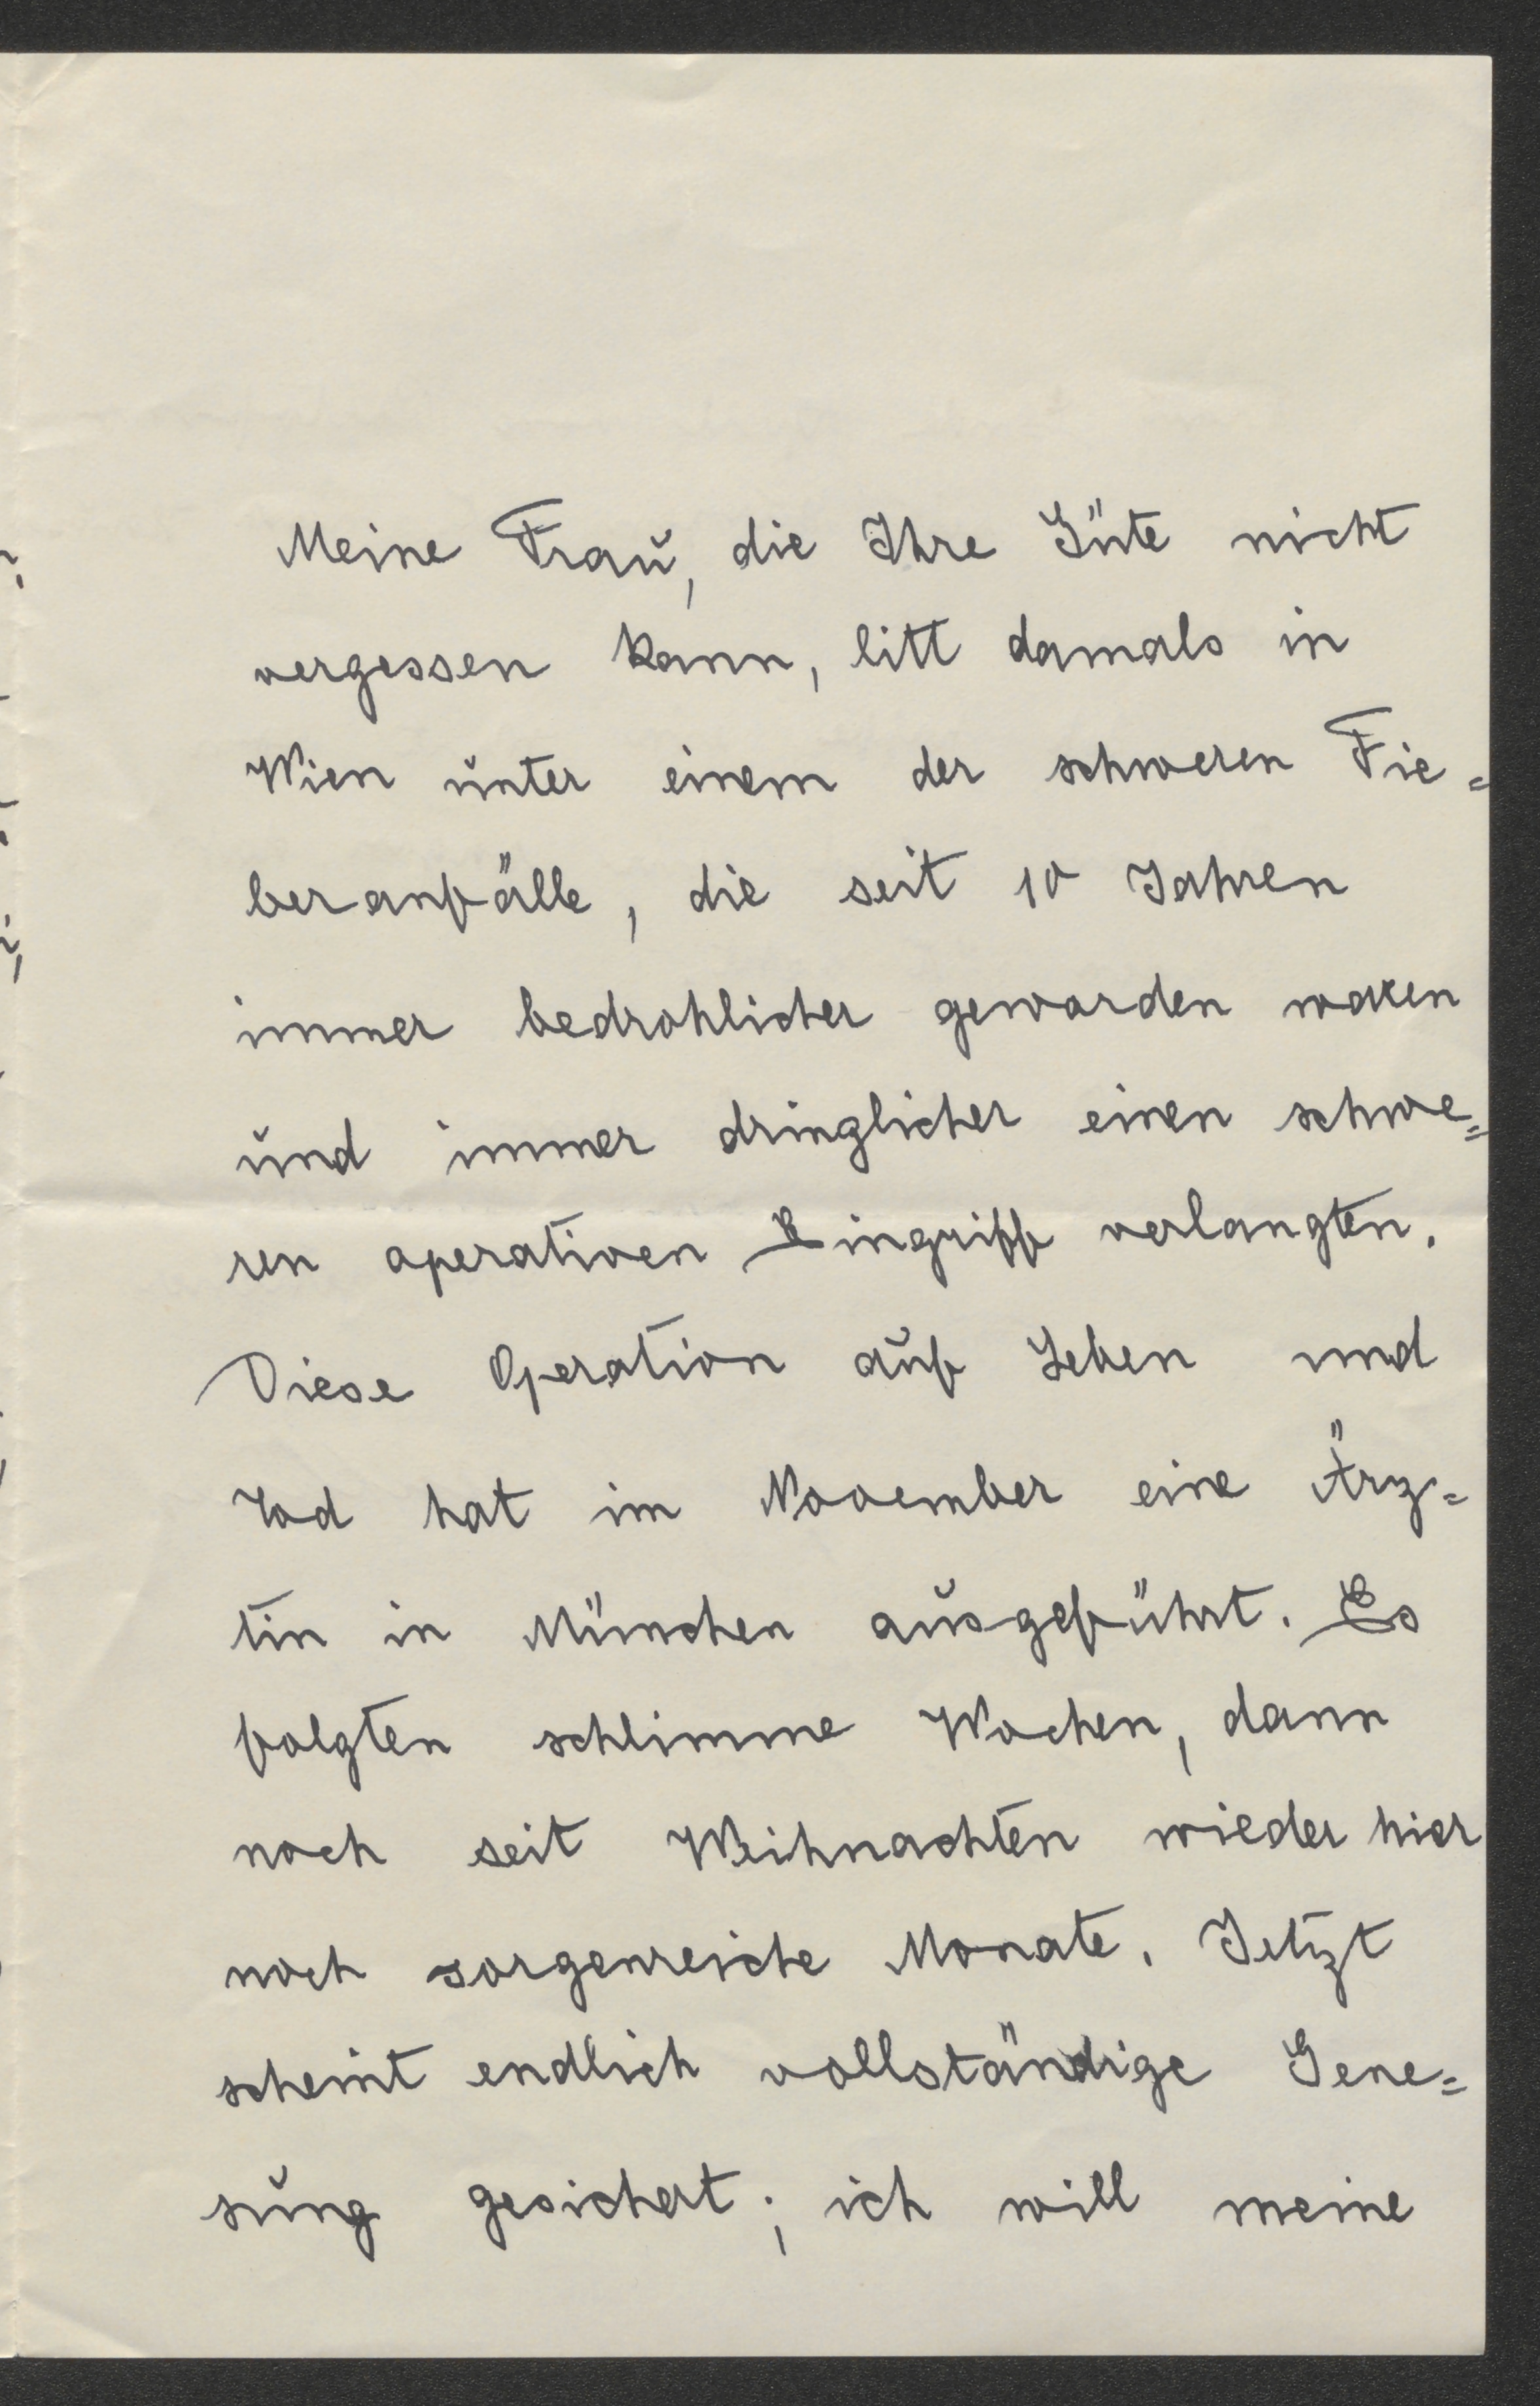 Meine Frau, die Ihre Güte nicht
vergessen kann, litt damals in
Wien unter einem der schweren Fie=
beranfälle, die seit 10 Jahren
immer bedrohlicher geworden waren
und immer dringlicher einen schwe=
ren operativen Eingriff verlangten.
Diese Operation auf Leben und
Tod hat im November eine Ärz=
tin in München ausgeführt. Es
folgten schlimme Wochen, dann
noch seit Weihnachten wieder hier
noch sorgenreiche Monate. Jetzt
scheint endlich vollständige Gene=
sung gesichert; ich will meine